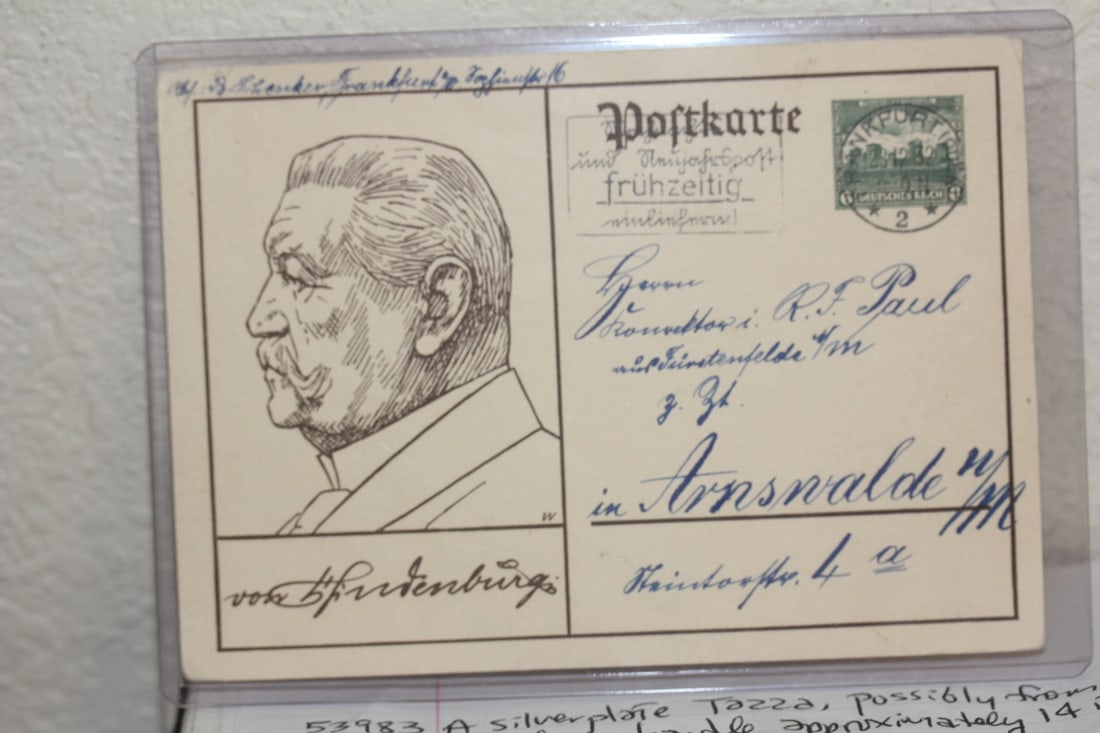 Frankfurt a/O Sophienstr 16
Postkarte
und Neujahrspost
frühzeitig
einliefern!
FRANKFURT (ODER)
2
6 DEUTSCHES REICH 4
Herrn
Konrektor i. R. F. Paul
aus Fürstenfelde N/M
z. Zt.
in Arnswalde N/M
Steintorstr. 4 a
W
von Hindenburg
53983 A silverplate Tazza, possibly from
handle approximately 14